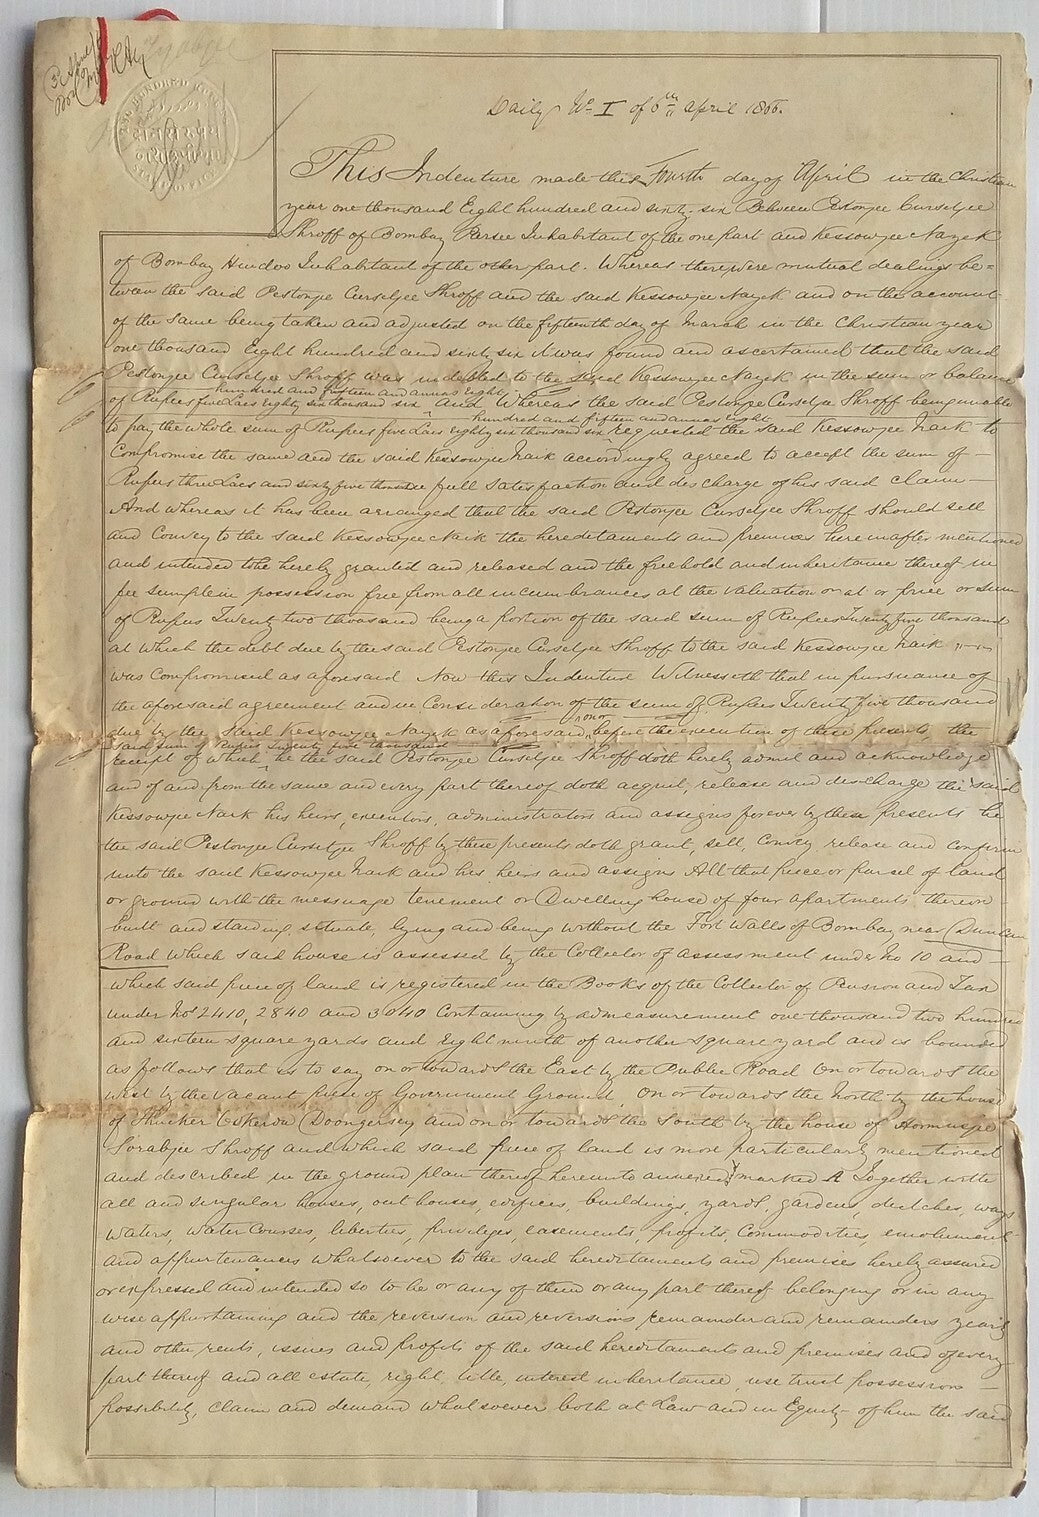 Daily No I of 6th April 1866.
This Indenture made this Fourth day of April in the Christian
year one thousand Eight hundred and sixty six Between Pestonjee Cursetjee
Shroff of Bombay Parsee Inhabitant of the one part and Kessowjee Nayek
of Bombay Hindoo Inhabitant of the other part. Whereas there were mutual dealings be=
tween the said Pestonjee Cursetjee Shroff and the said Kessowjee Nayek and on the account
of the same being taken and adjusted on the fifteenth day of March in the Christian year
one thousand Eight hundred and sixty six it was found and ascertained that the said
Pestonjee Cursetjee Shroff was indebted to the said Kessowjee Nayek in the sum or balance
hundred and fifteen and annas Eight
of Rupees five Lacs Eighty six thousand six And Whereas the said Pestonjee Cursetjee Shroff being unable
hundred and fifteen and annas Eight
to pay the whole sum of Rupees five Lacs Eighty six thousand six requested the said Kessowjee Naik to
Compromise the same and the said Kessowjee Naik accordingly agreed to accept the sum of
Rupees three Lacs and sixty five thousand full satisfaction and discharge of his said claim
And whereas it has been arranged that the said Pestonjee Cursetjee Shroff should sell
and Convey to the said Kessowjee Naik the hereditaments and premises hereinafter mentioned
and intended to be hereby granted and released and the freehold and inheritance thereof in
fee simple in possession free from all incumbrances at the valuation or at or price or sum
of Rupees Twenty two thousand being a portion of the said sum of Rupees Twenty five thousand
at which the debt due by the said Pestonjee Cursetjee Shroff to the said Kessowjee Naik
was Compromised as aforesaid Now this Indenture Witnesseth that in pursuance of
the aforesaid agreement and in Consideration of the sum of Rupees Twenty five thousand
on or
due by the said Kessowjee Nayek as aforesaid, before the execution of these presents, the
said sum of Rupees Twenty five thousand
receipt of which he the said Pestonjee Cursetjee Shroff doth hereby admit and acknowledge
and of and from the same and every part thereof doth acquit, release and discharge the said
Kessowjee Naik his heirs, executors, administrators and assigns forever by these presents he
the said Pestonjee Cursetjee Shroff by these presents doth grant, sell, Convey release and confirm
unto the said Kessowjee Naik and his heirs and assigns All that piece or parcel of land
or ground with the message tenement or Dwelling house of four apartments thereon
built and standing, situate, lying and being without the Fort Walls of Bombay near Duncan
Road which said house is assessed by the Collector of assessment under No 10 and
which said piece of land is registered in the Books of the Collector of Pension and Tax
under Nos 2410, 2840 and 3040 Containing by admeasurement one thousand two hundred
and sixteen square yards and Eight ninth of another square yard and is bounded
as follows that is to say on or towards the East by the Public Road On or towards the
west by the vacant piece of Government Ground, On or towards the North by the house
of Thucker Doongersey and on or towards the South by the house of Hormusjee
Sorabjee Shroff and which said piece of land is more particularly mentioned
and described in the ground plan thereof hereunto annexed marked A Together with
all and singular houses, out houses, edifices, buildings, yards, gardens, ditches, ways
waters, water Courses, liberties, privileges, easements, profits, Commodities, emolument
and appurtenances whatsoever to the said hereditaments and premises hereby assured
or expressed and intended so to be or any of them or any part thereof belonging or in any
wise appurtaining and the reversion and reversions remainder and remainders yearly
and other rents, issues and profits of the said hereditaments and premises and of every
part thereof and all estate, right, title, interest inheritance, use trust possession
possibility, claim and demand whatsoever both at Law and in Equity of him the said